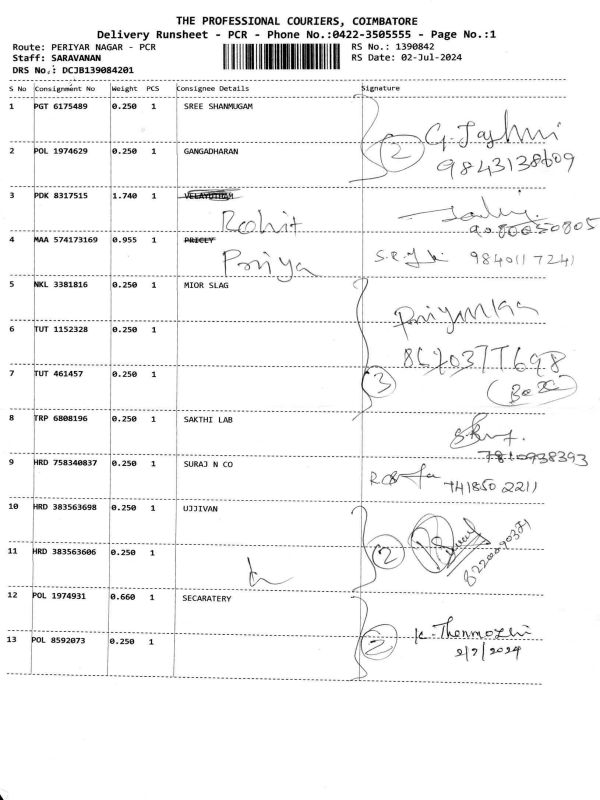 THE PROFESSIONAL COURIERS, COIMBATORE
Delivery Runsheet - PCR - Phone No.:0422-3505555 - Page No.:1
Route: PERIYAR NAGAR - PCR RS No.: 1390842
Staff: SARAVANAN RS Date: 02-Jul-2024
DRS No.: DCJB139084201
S No Consignment No Weight PCS Consignee Details Signature
1 PGT 6175489 0.250 1 SREE SHANMUGAM
2 9843138609
2 POL 1974629 0.250 1 GANGADHARAN
3 PDK 8317515 1.740 1 VELAYUTHAM
Rohit
4 MAA 574173169 0.955 1 PRICEY
Priya 9840117241
5 NKL 3381816 0.250 1 MIOR SLAG
Priyanka
6 TUT 1152328 0.250 1
7 TUT 461457 0.250 1
3
8 TRP 6808196 0.250 1 SAKTHI LAB
7810938393
9 HRD 758340837 0.250 1 SURAJ N CO
7418502211
10 HRD 383563698 0.250 1 UJJIVAN
11 HRD 383563606 0.250 1
2
12 POL 1974931 0.660 1 SECARATERY
K. Thenmozhi
13 POL 8592073 0.250 1
2 2/7/2024